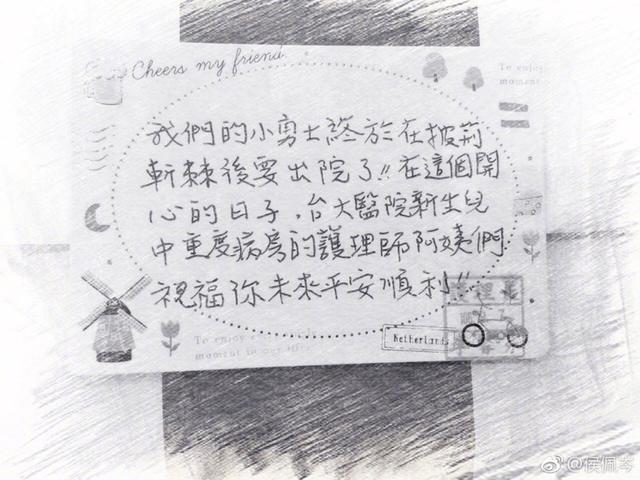 Cheers my friend.
To enjoy
moment
我們的小勇士終於在披荊
斬棘後要出院了!!在這個開
心的日子,台大醫院新生兒
中重度病房的護理師阿姨們
祝福你未來平安順利!!
To enjoy
moment in our
Netherlands
@侯佩岑